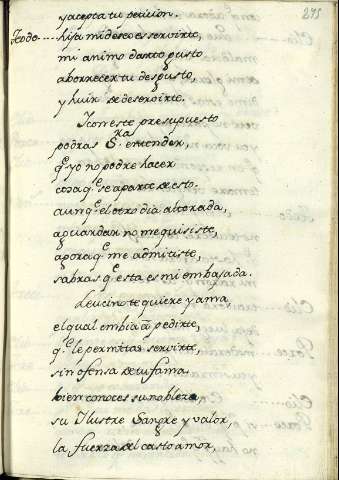 275
y acepta tu peticion.
Teodo---- hija mi deseo es servirte,
mi animo darte gusto
aborrecer tu desgusto,
y huir de deservirte.
Y con este presupuesto
podras S.ra entender,
q.e yo no podre hacer
cosa q.e se aparte de esto.
aunq.e el otro dia alterada,
aguardar no me quisiste,
agora q.e me admitiste,
sabras q.e esta es mi embajada.
Leucino te quiere y ama
el qual embia à pedirte,
q.e le permitas servirte,
sin ofensa de tu fama.
bien conoces su nobleza
su Ilustre Sangre y valor,
la fuerza del casto amor,